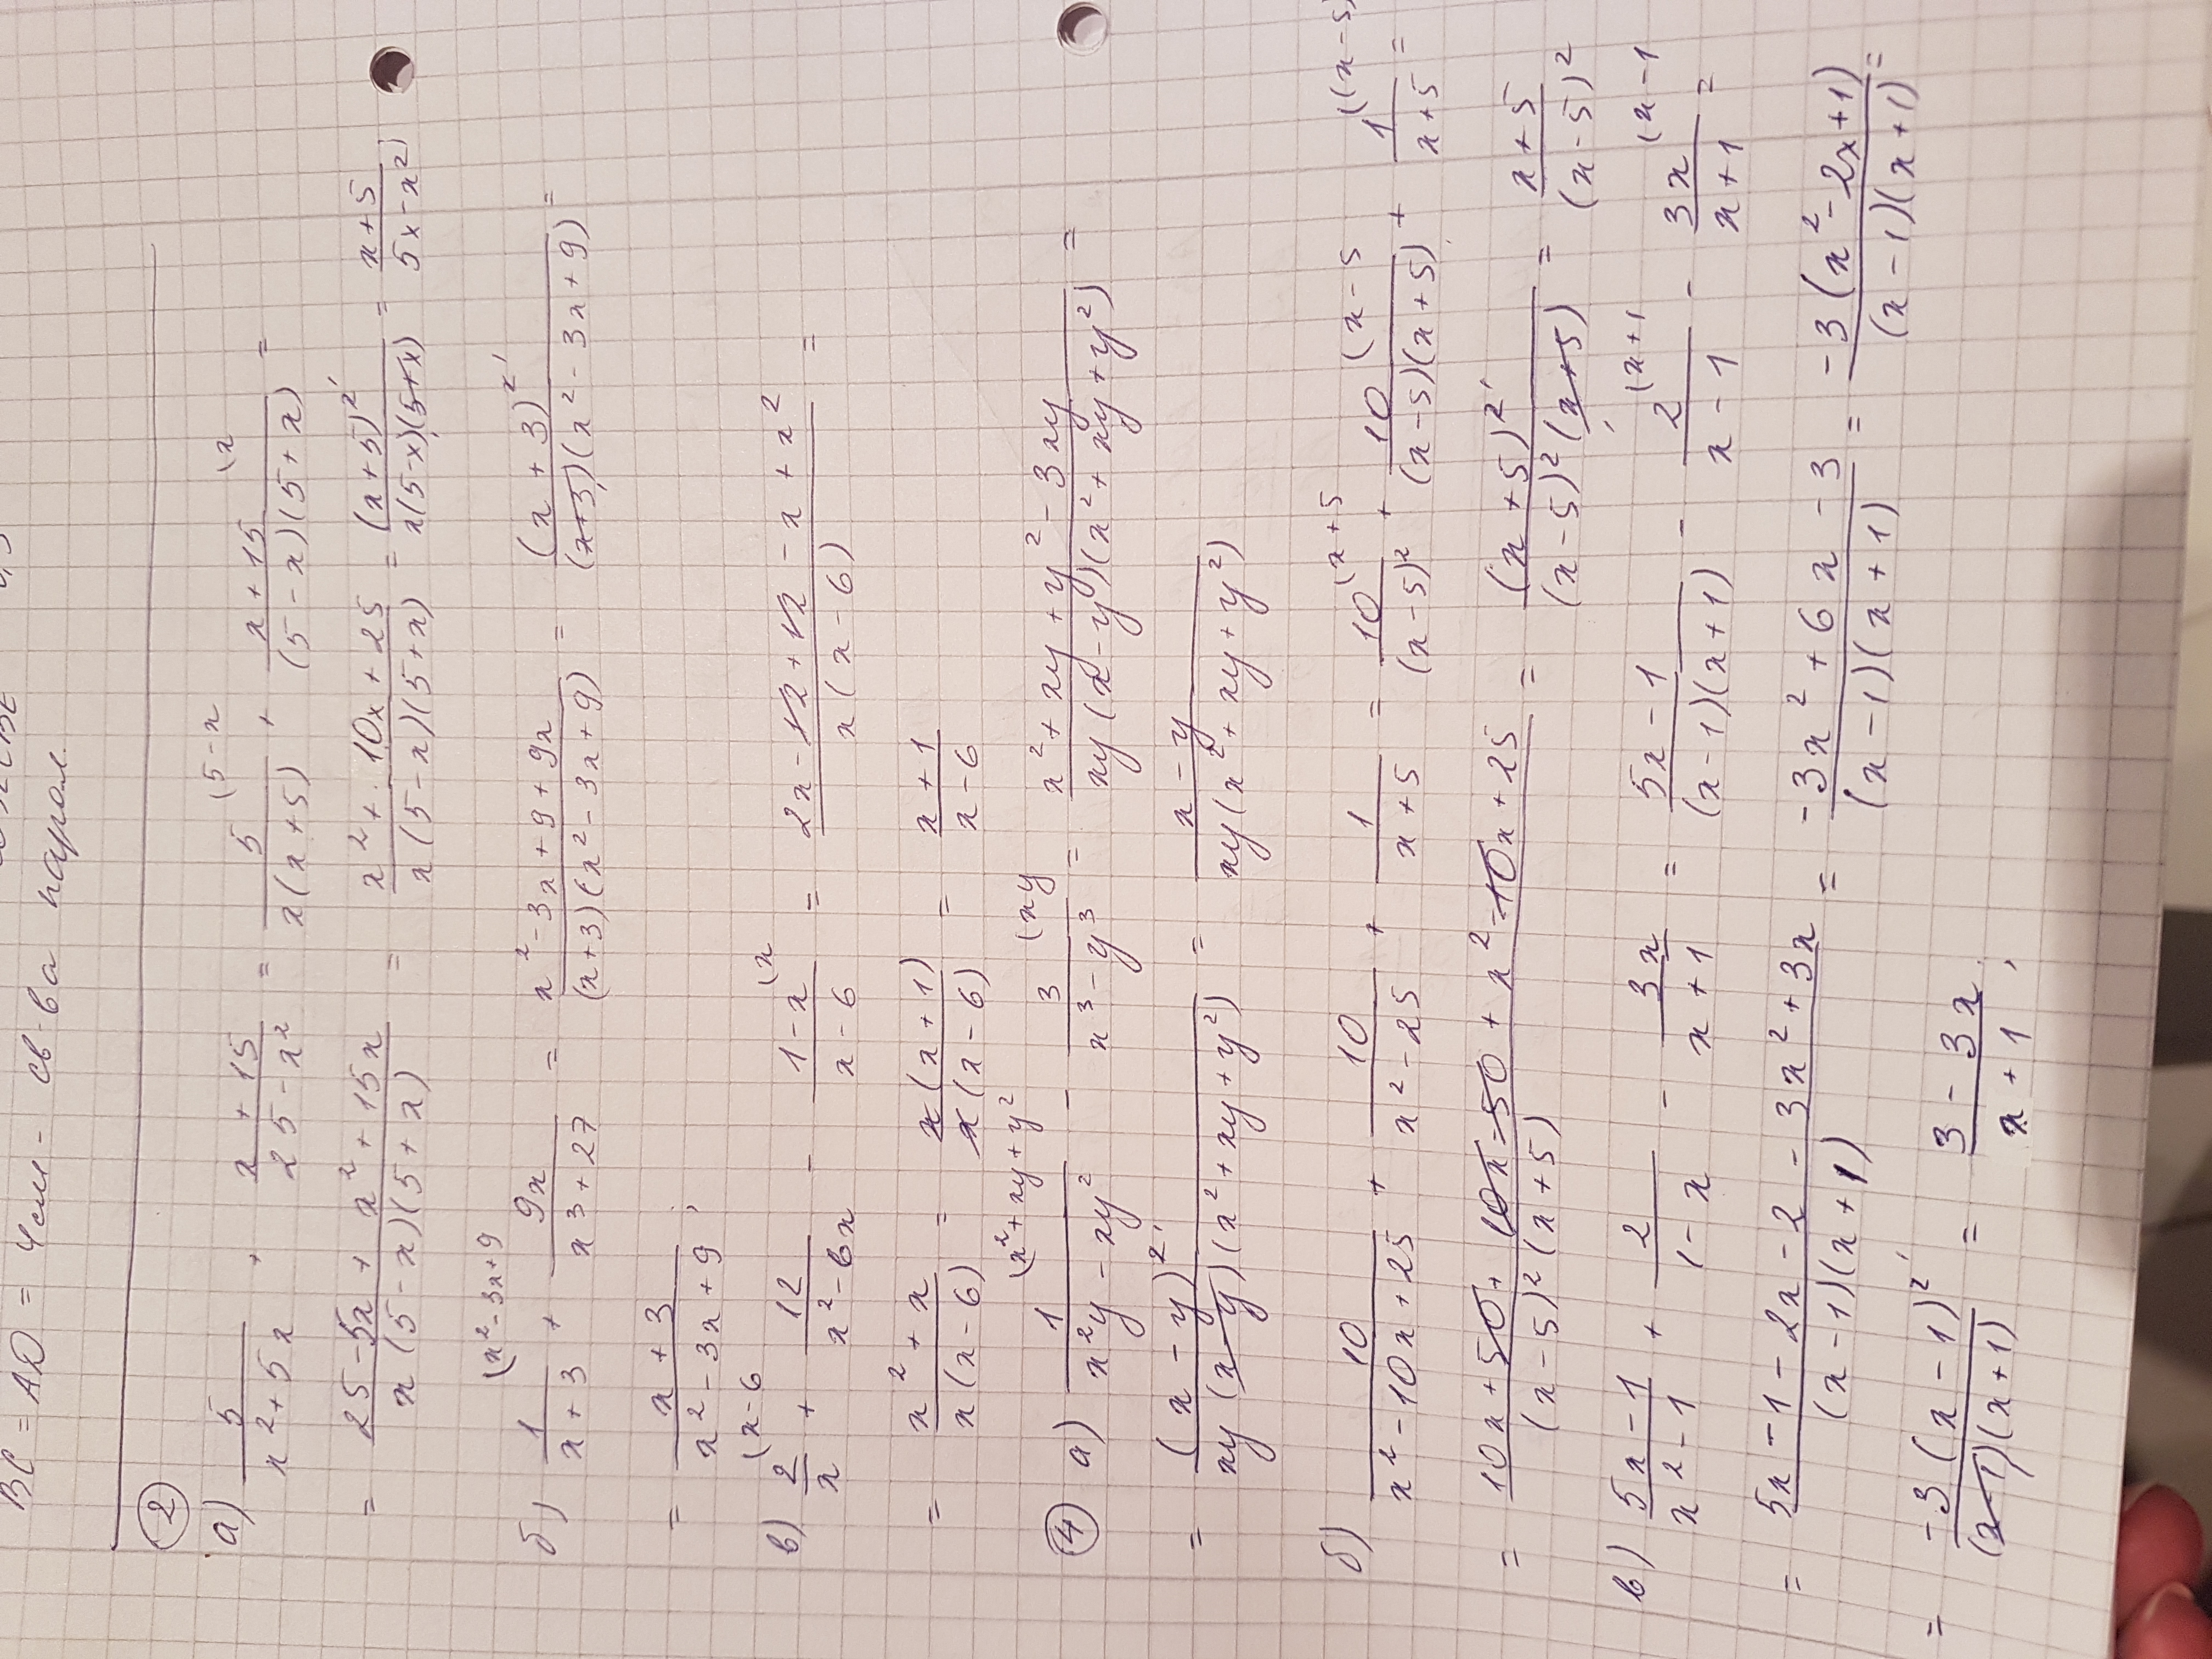 BC = AD = 4см - св-ва парал.
②
а) 5/(x²+5x) + (x+15)/(25-x²) = 5/(x(x+5)) (5-x + (x+15)/((5-x)(5+x)) (x =
= (25-5x+x²+15x)/(x(5-x)(5+x)) = (x²+10x+25)/(x(5-x)(5+x)) = (x+5)²/(x(5-x)(5+x)) = (x+5)/(5x-x²)
б) 1/(x+3) (x²-3x+9 + 9x/(x³+27) = (x²-3x+9+9x)/((x+3)(x²-3x+9)) = (x+3)²/((x+3)(x²-3x+9)) =
= (x+3)/(x²-3x+9);
в) 2/x (x-6 + 12/(x²-6x) - (1-x)/(x-6) (x = (2x-12+12-x+x²)/(x(x-6)) =
= (x²+x)/(x(x-6)) = x(x+1)/(x(x-6)) = (x+1)/(x-6)
④ а) 1/(x²y-xy²) (x²+xy+y² - 3/(x³-y³) (xy = (x²+xy+y²-3xy)/(xy(x-y)(x²+xy+y²)) =
= (x-y)²/(xy(x-y)(x²+xy+y²)) = (x-y)/(xy(x²+xy+y²))
б) 10/(x²-10x+25) + 10/(x²-25) + 1/(x+5) = 10/(x-5)² (x+5 + 10/((x-5)(x+5)) (x-5 + 1/(x+5) ((x-5) =
= (10x+50+10x-50+x²-10x+25)/((x-5)²(x+5)) = (x+5)²/((x-5)²(x+5)) = (x+5)/(x-5)²
в) (5x-1)/(x²-1) + 2/(1-x) - 3x/(x+1) = (5x-1)/((x-1)(x+1)) - 2/(x-1) (x+1 - 3x/(x+1) (x-1 =
= (5x-1-2x-2-3x²+3x)/((x-1)(x+1)) = (-3x²+6x-3)/((x-1)(x+1)) = -3(x²-2x+1)/((x-1)(x+1)) =
= -3(x-1)²/((x-1)(x+1)) = (3-3x)/(x+1);